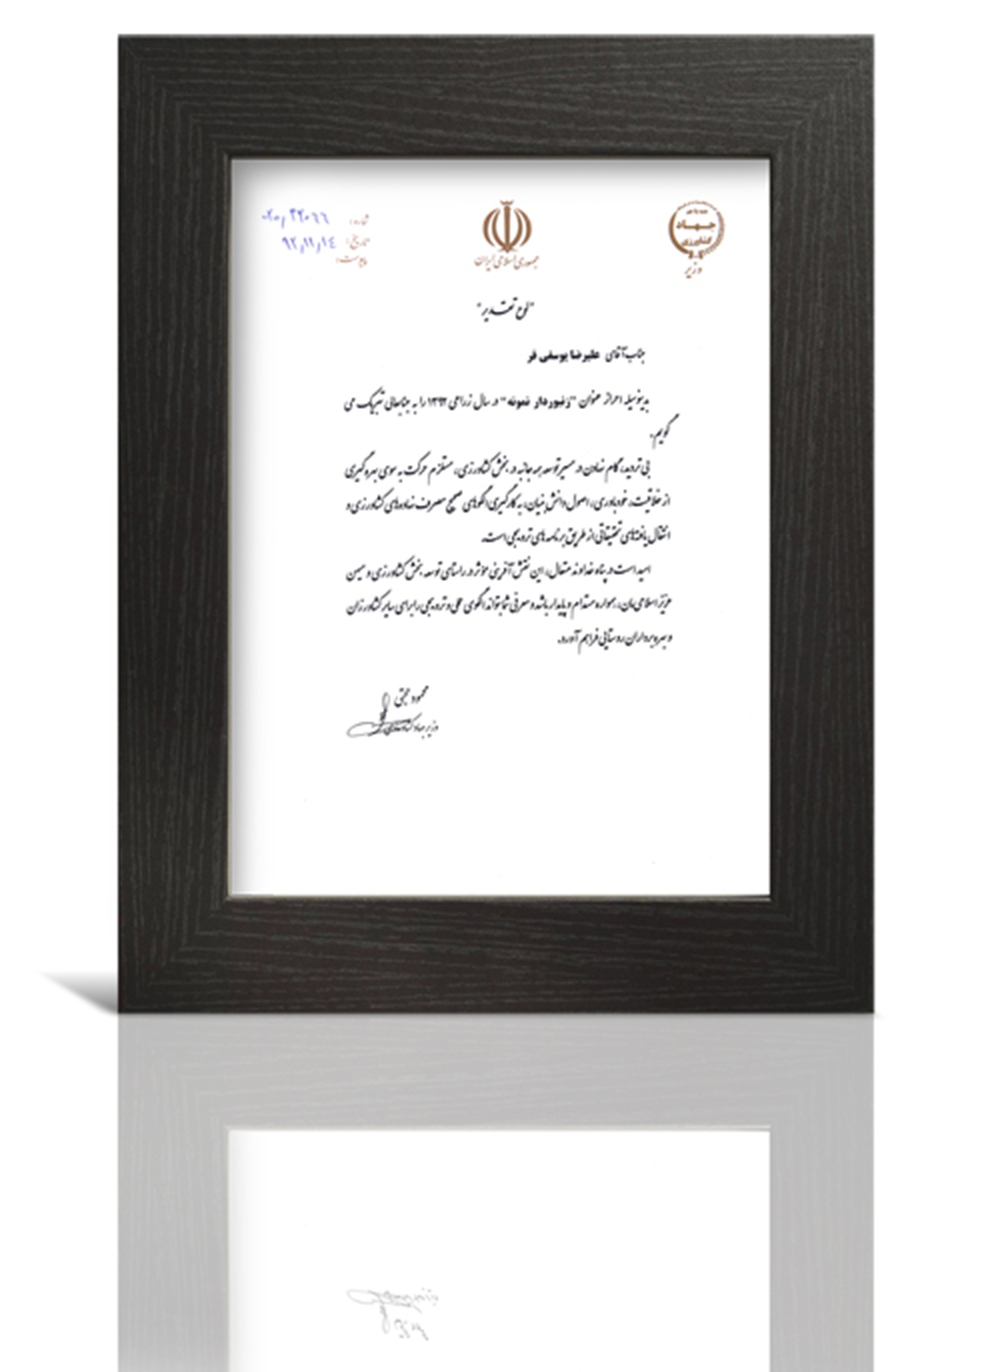 جهاد
کشاورزی
وزیر
جمهوری اسلامی ایران
شماره: ۰۲۰/۲۲۰۶۶
تاریخ: ۹۲/۱۱/۱٤
پیوست:
"لوح تقدیر"
جناب آقای علیرضا یوسفی فر
بدینوسیله احراز عنوان "زنبوردار نمونه" در سال زراعی ۱۳۹۲ را به جنابعالی تبریک می
گویم.
بی تردید، گام نهادن در مسیر توسعه همه جانبه در بخش کشاورزی، مستلزم حرکت به سوی بهره گیری
از خلاقیت، خودباوری، اصول دانش بنیان، به کارگیری الگوهای صحیح مصرف نهاده های کشاورزی و
انتقال یافته های تحقیقاتی از طریق برنامه های ترویجی است.
امید است در پناه خداوند متعال، این نقش آفرینی مؤثر در راستای توسعه بخش کشاورزی و میهن
عزیز اسلامی مان، همواره مستدام و پایدار باشد و معرفی شما بتواند الگوی عملی و ترویجی را برای سایر کشاورزان
و بهره برداران روستایی فراهم آورد.
محمود حجتی
وزیر جهاد کشاورزی